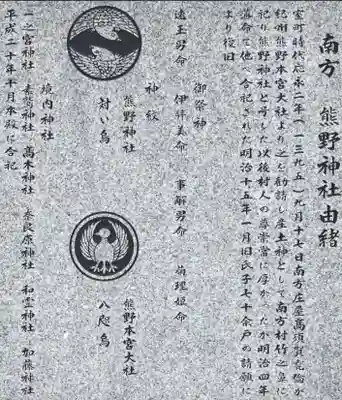 南方 熊野神社由緒
室町時代応永二年(一三九五)九月十七日南方庄屋高須賀克倫が
紀州熊野本宮大社より之を勧請し産土神として南方村竹之鼻に
祀り熊野神社と号した以後村人の尊崇常に厚かったが明治四年
道命で他へ合祀された明治十五年一月旧氏子七十余戸の請願に
より復旧
御祭神
速玉男命 伊弉美命 事解男命 菊理姫命
神紋
熊野神社
対い烏
熊野本宮大社
八咫烏
境内神社
一之宮神社 素鵞神社 高木神社 奈良原神社 和霊神社 加藤神社
平成二十年十月本殿に合祀